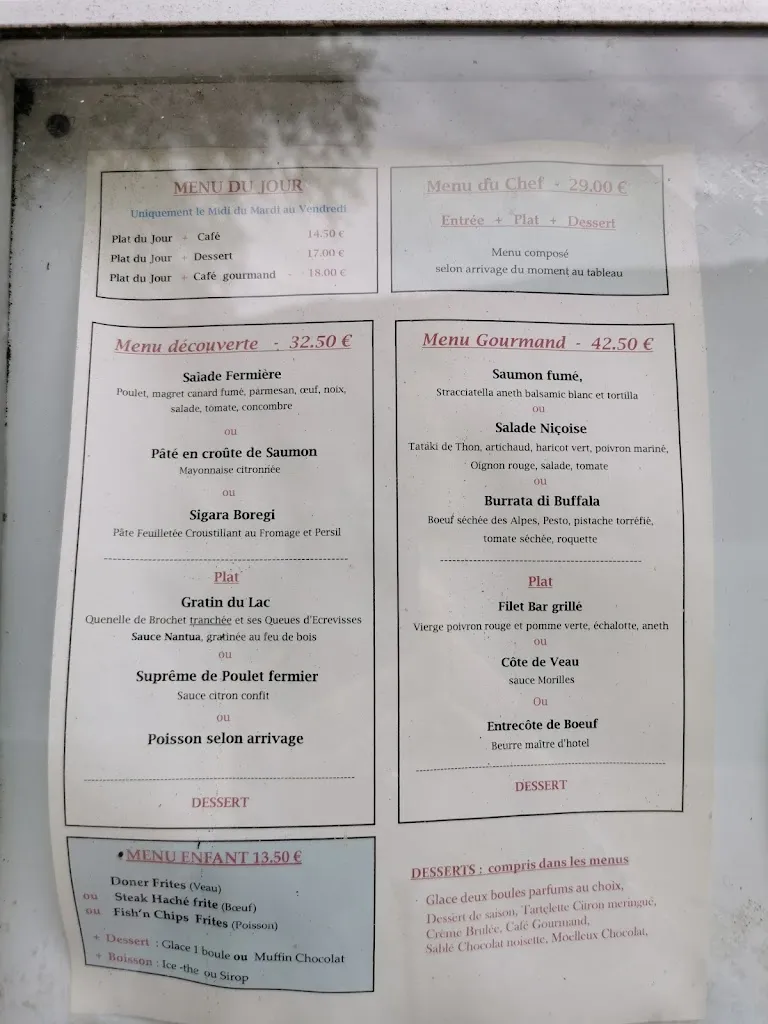 MENU DU JOUR
Uniquement le Midi du Mardi au Vendredi
Plat du Jour + Café 14.50 €
Plat du Jour + Dessert 17.00 €
Plat du Jour + Café gourmand - 18.00 €
Menu du Chef - 29.00 €
Entrée + Plat + Dessert
Menu composé
selon arrivage du moment au tableau
Menu découverte - 32.50 €
Salade Fermière
Poulet, magret canard fumé, parmesan, œuf, noix,
salade, tomate, concombre
ou
Pâté en croûte de Saumon
Mayonnaise citronnée
ou
Sigara Boregi
Pâte Feuilletée Croustillant au Fromage et Persil
Plat
Gratin du Lac
Quenelle de Brochet tranchée et ses Queues d'Ecrevisses
Sauce Nantua, gratinée au feu de bois
ou
Suprême de Poulet fermier
Sauce citron confit
ou
Poisson selon arrivage
DESSERT
Menu Gourmand - 42.50 €
Saumon fumé,
Stracciatella aneth balsamic blanc et tortilla
ou
Salade Niçoise
Tataki de Thon, artichaud, haricot vert, poivron mariné,
Oignon rouge, salade, tomate
ou
Burrata di Buffala
Boeuf séchée des Alpes, Pesto, pistache torréfié,
tomate séchée, roquette
Plat
Filet Bar grillé
Vierge poivron rouge et pomme verte, échalotte, aneth
ou
Côte de Veau
sauce Morilles
Ou
Entrecôte de Boeuf
Beurre maître d'hotel
DESSERT
MENU ENFANT 13.50 €
Doner Frites (Veau)
ou Steak Haché frite (Bœuf)
ou Fish'n Chips Frites (Poisson)
+ Dessert : Glace 1 boule ou Muffin Chocolat
+ Boisson : Ice -the ou Sirop
DESSERTS : compris dans les menus
Glace deux boules parfums au choix,
Dessert de saison, Tartelette Citron meringué,
Crème Brulée, Café Gourmand,
Sablé Chocolat noisette, Moelleux Chocolat,